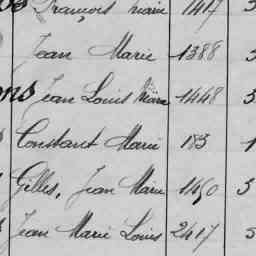 François Marie 1417 3
Jean Marie 1388 3
ns Jean Louis Marie 1448 3
Constant Marie 183 1
Gilles, Jean Marie 1450 3
Jean Marie Louis 2417 5